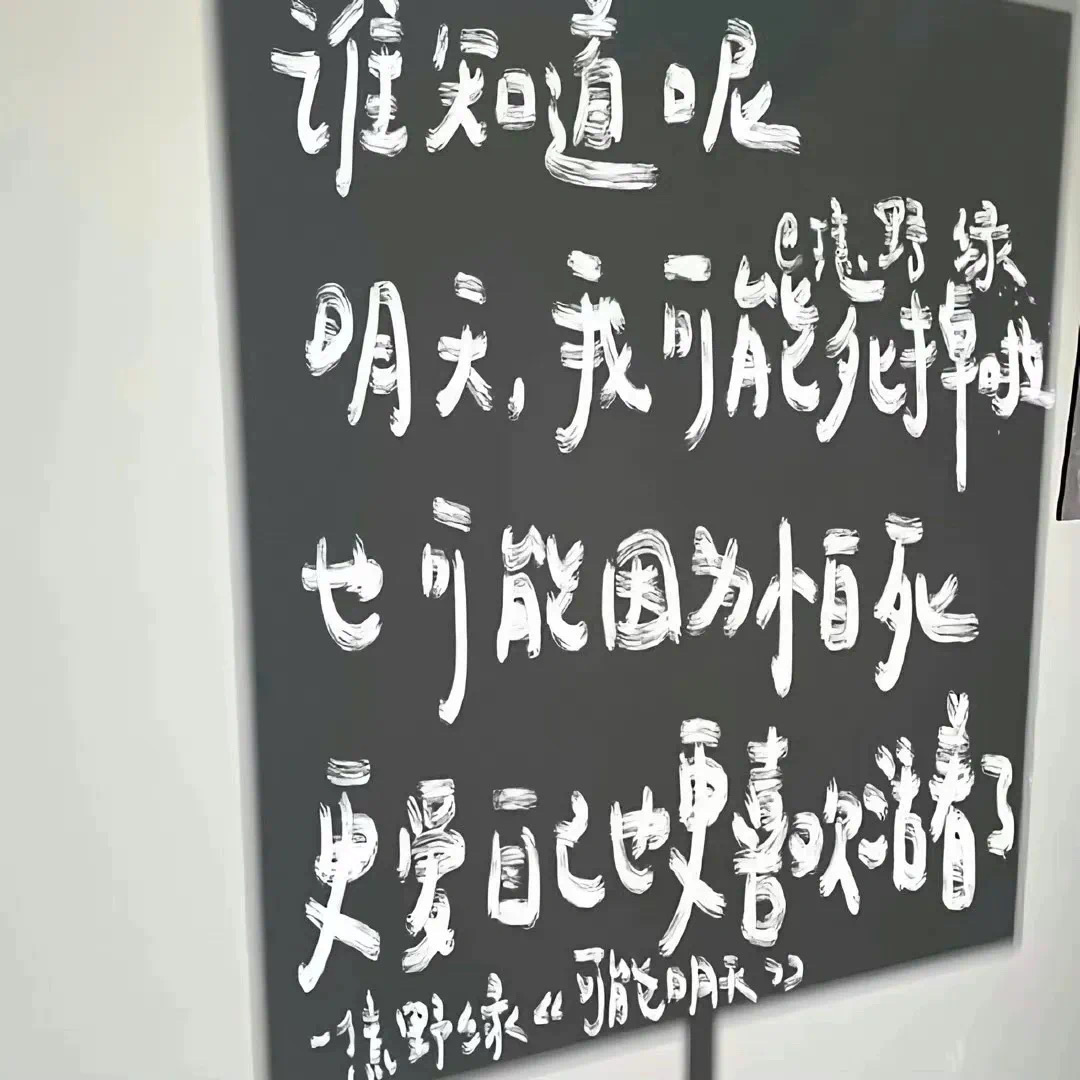 谁知道呢
@焦野绿
明天,我可能死掉啦
也可能因为怕死
更爱自己也更喜欢活着了
一焦野绿《可能明天》